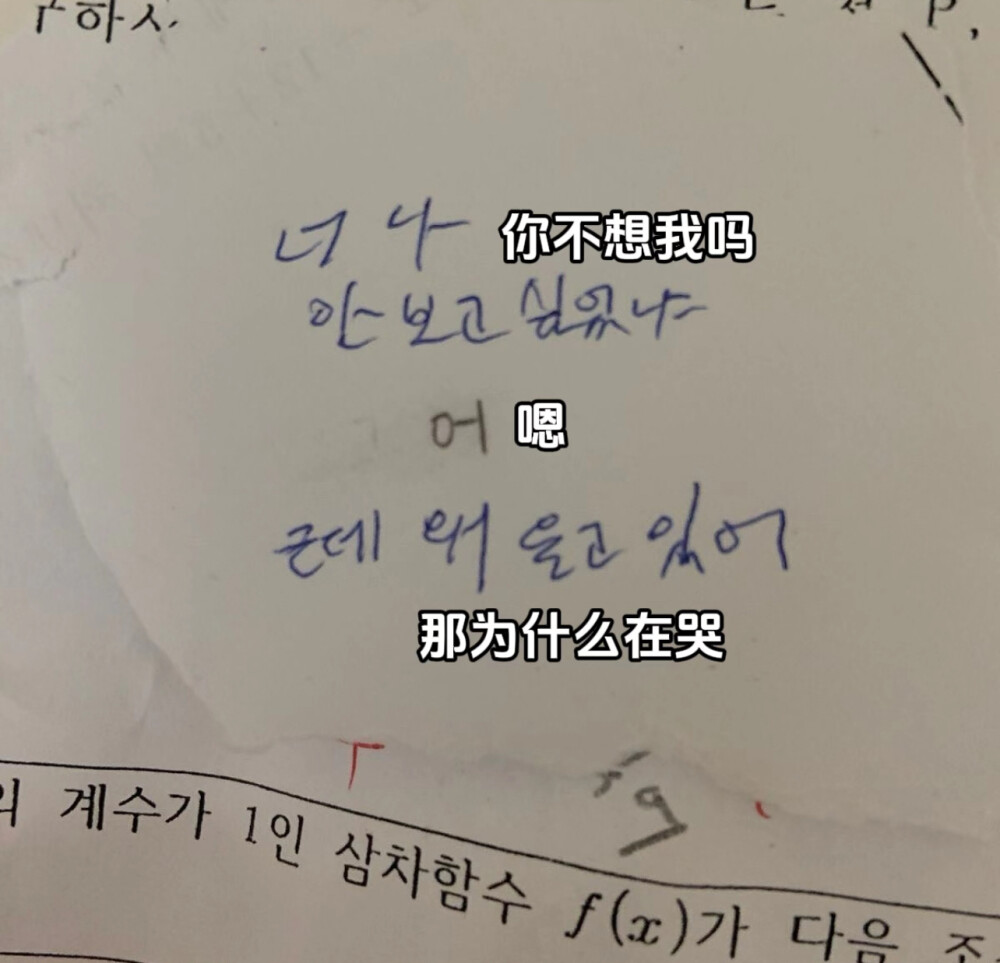 하시
P,
너 나 你不想我吗
안 보고 싶었냐
어 嗯
근데 왜 울고 있어
那为什么在哭
계수가 1인 삼차함수 f(x)가 다음 조